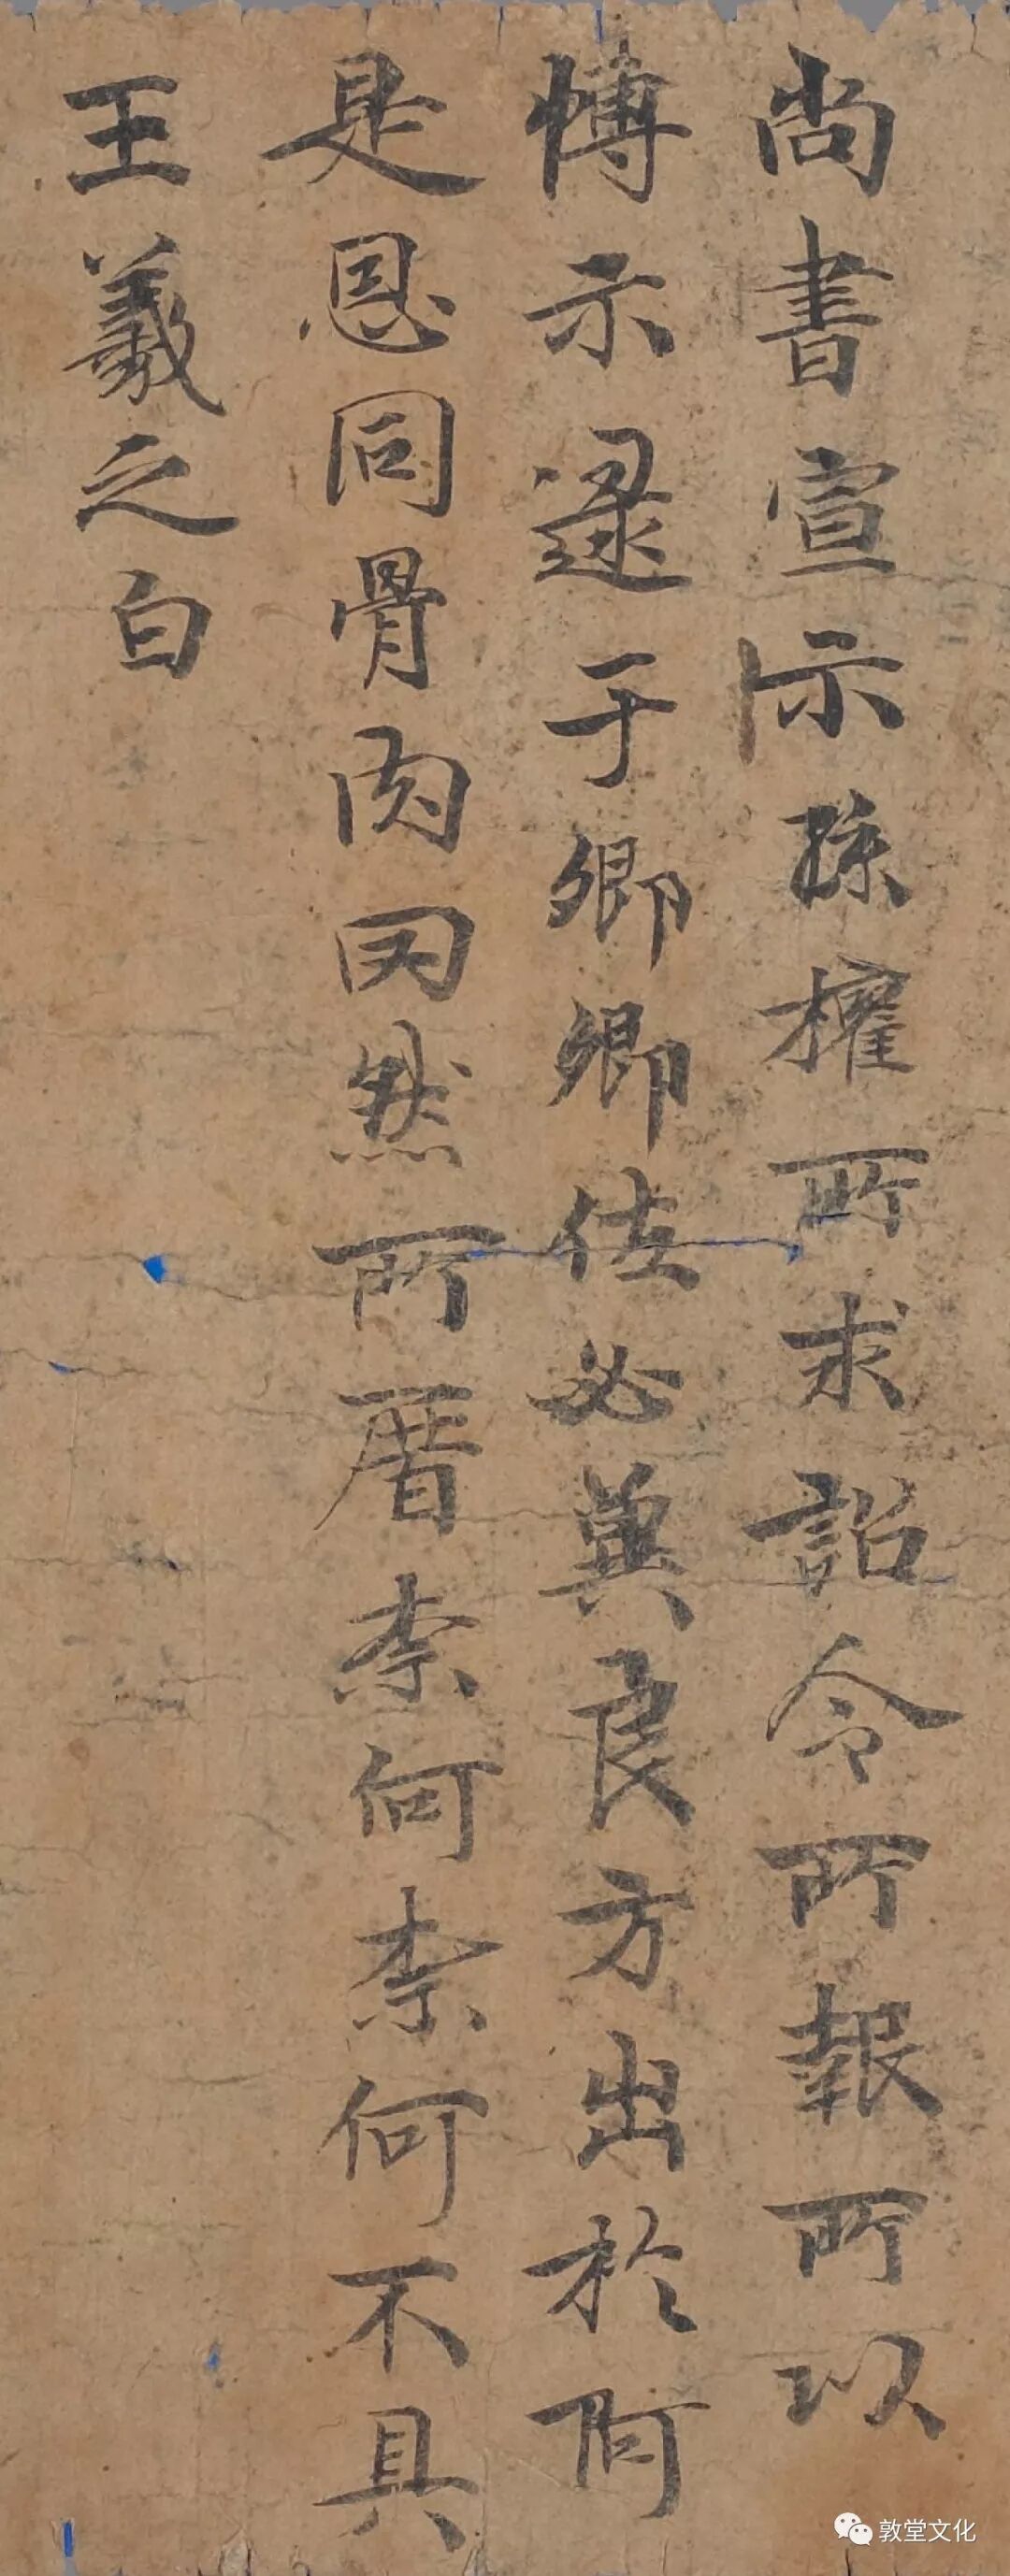 尚書宣示孫權所求詔令所報所以
愽示逮于卿卿佐必冀良方出於阿
是恩同骨肉因然所厝奈何奈何不具
王羲之白
敦堂文化